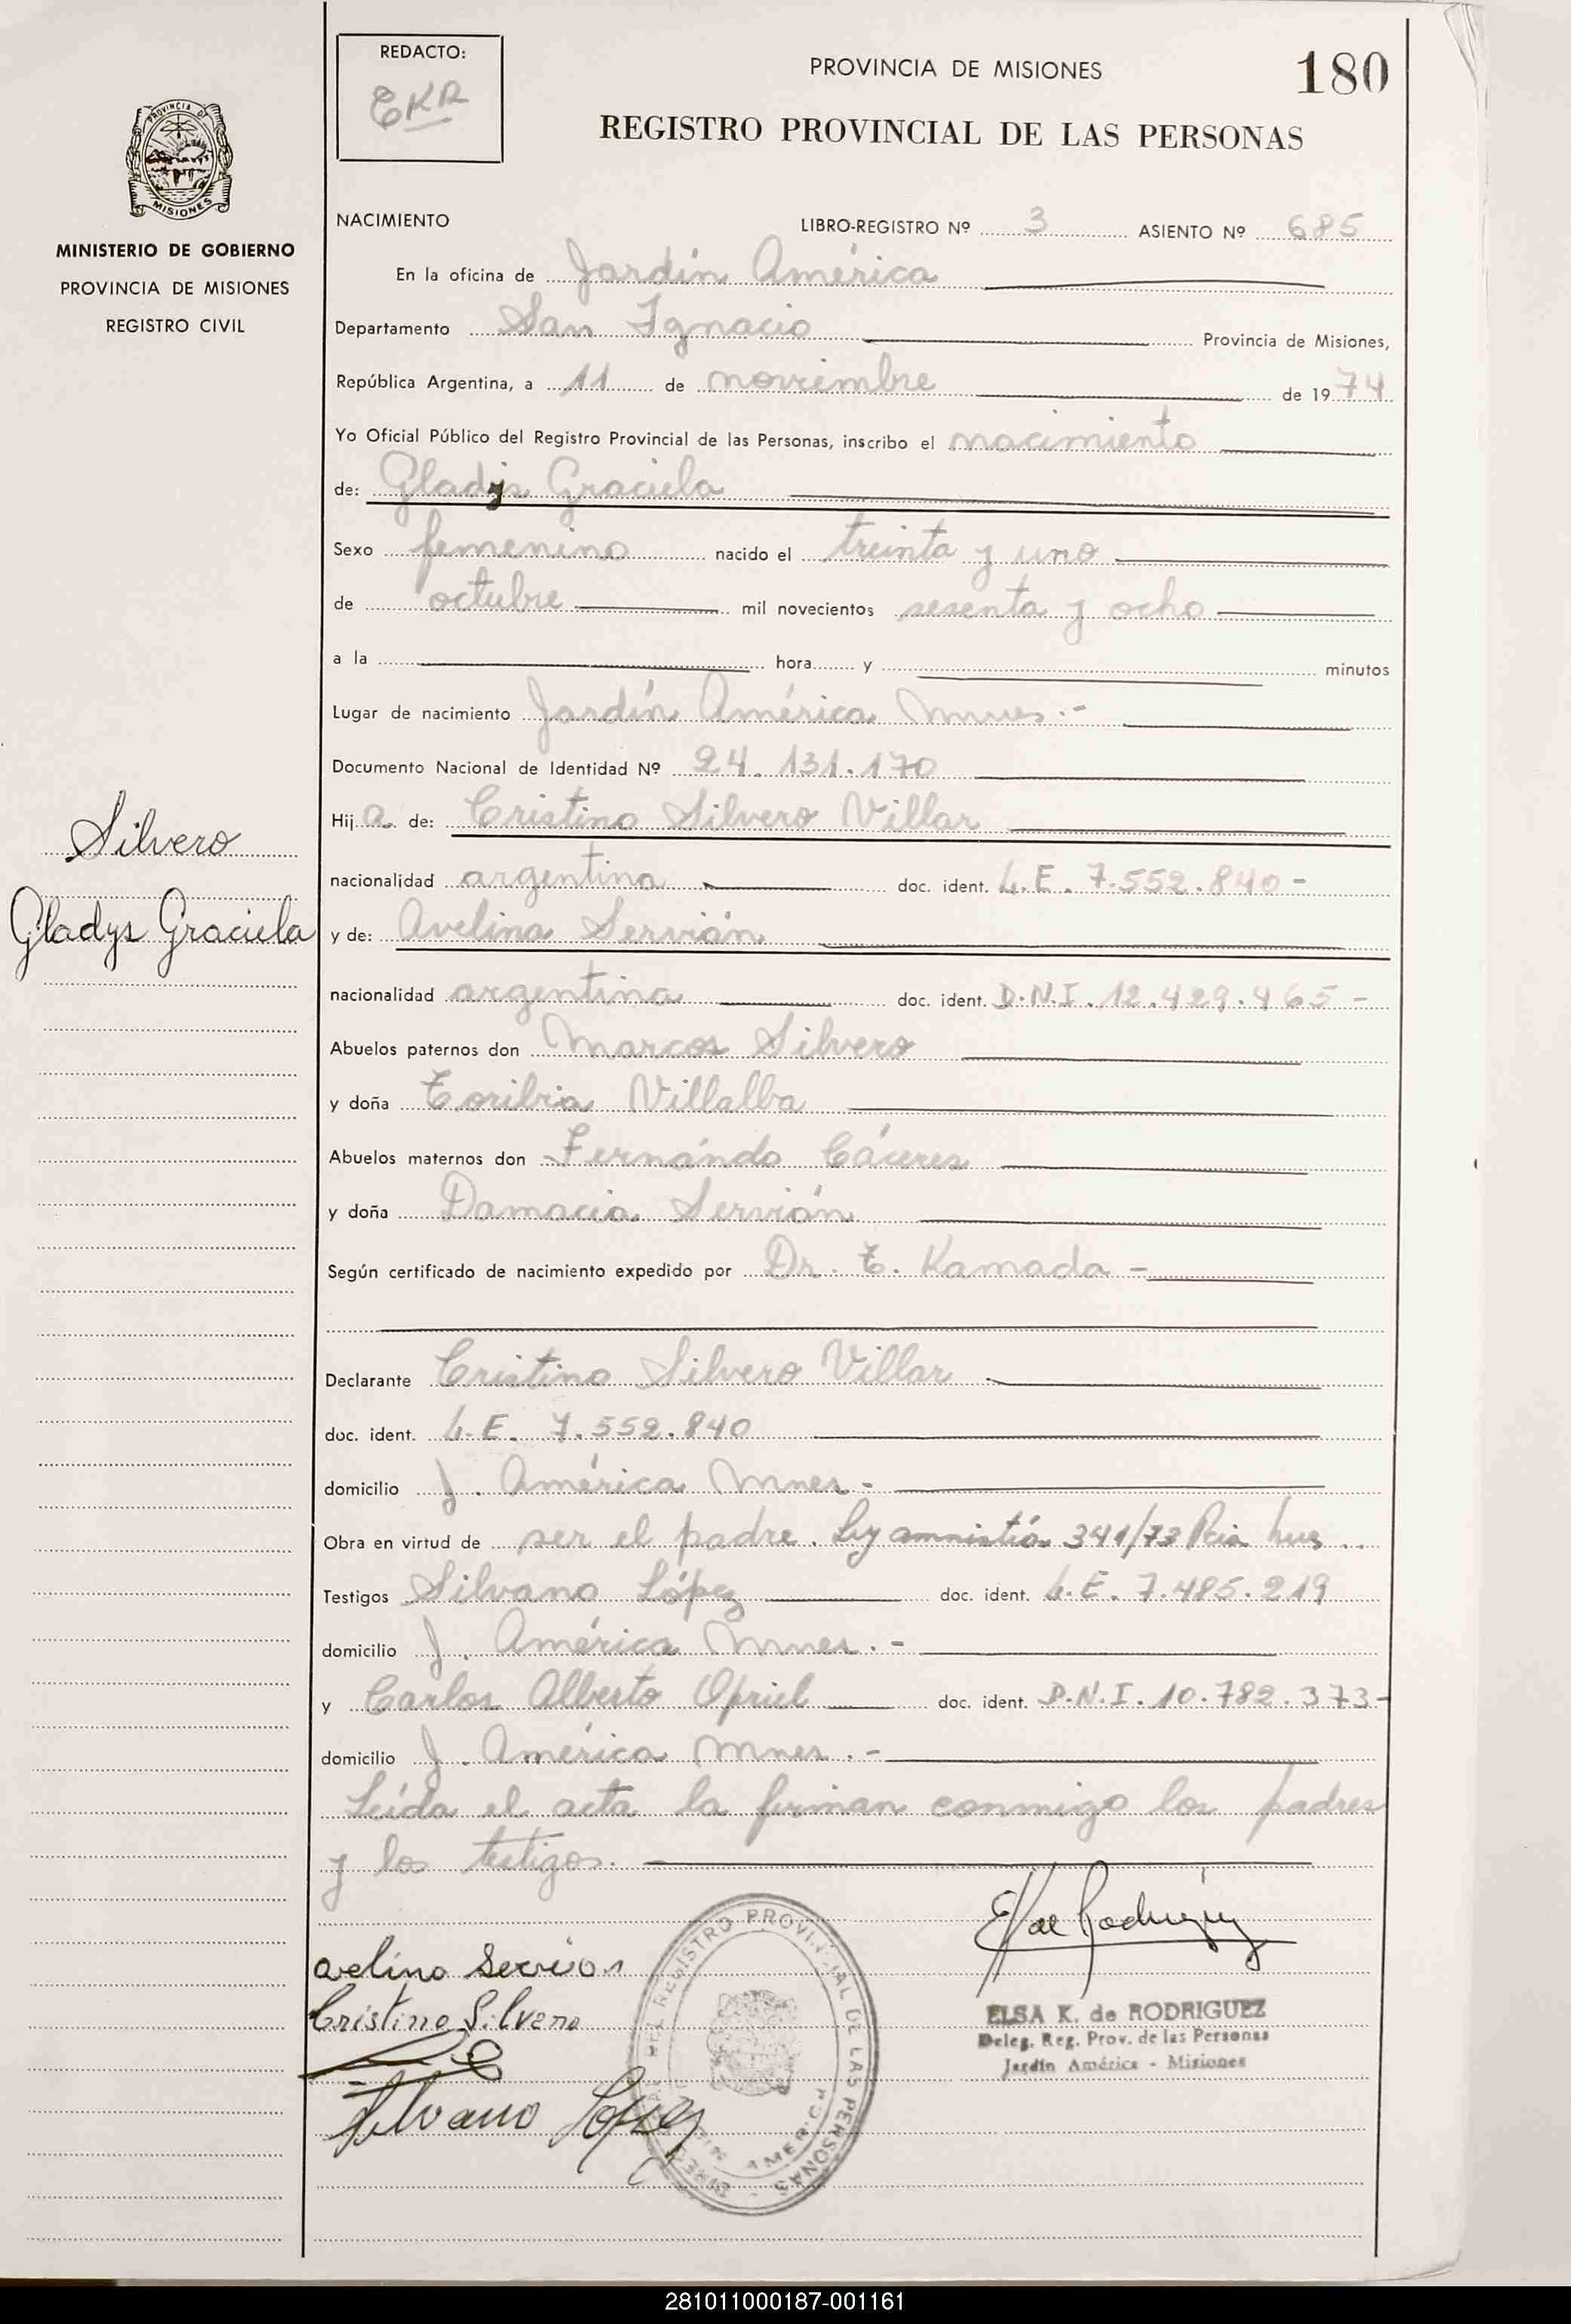 REDACTO:
EKR
PROVINCIA DE MISIONES
180
REGISTRO PROVINCIAL DE LAS PERSONAS
PROVINCIA DE
MISIONES
MINISTERIO DE GOBIERNO
PROVINCIA DE MISIONES
REGISTRO CIVIL
Silvero
Gladys Graciela
NACIMIENTO LIBRO-REGISTRO Nº 3 ASIENTO Nº 685
En la oficina de Jardín América
Departamento San Ignacio Provincia de Misiones,
República Argentina, a 11 de noviembre de 1974
Yo Oficial Público del Registro Provincial de las Personas, inscribo el nacimiento
de: Gladys Graciela
Sexo femenino nacido el treinta y uno
de octubre mil novecientos sesenta y ocho
a la hora y minutos
Lugar de nacimiento Jardín América Mnes.-
Documento Nacional de Identidad Nº 24.131.170
Hija de: Cristino Silvero Villar
nacionalidad argentina doc. ident. L.E. 7.552.840-
y de: Avelina Servián
nacionalidad argentina doc. ident. D.N.I. 12.429.465-
Abuelos paternos don Marcos Silvero
y doña Toribia Villalba
Abuelos maternos don Fernándo Cáceres
y doña Damacia Servián
Según certificado de nacimiento expedido por Dr. T. Kamada-
Declarante Cristino Silvero Villar
doc. ident. L.E. 7.552.840
domicilio J. América Mnes-
Obra en virtud de ser el padre. Ley amnistía 341/73
Testigos Silvano López doc. ident. L.E. 7.485.219
domicilio J. América Mnes.-
y Carlos Alberto Opriel doc. ident. D.N.I. 10.782.373-
domicilio J. América Mnes.-
Leída el acta la firman conmigo los padres
y los testigos.
Avelina Servion
Cristino Silvero
Silvano Lopez
E K de Rodriguez
ELSA K. de RODRIGUEZ
Deleg. Reg. Prov. de las Personas
Jardín América - Misiones
REGISTRO PROVINCIAL DE LAS PERSONAS
AMERICA
281011000187-001161